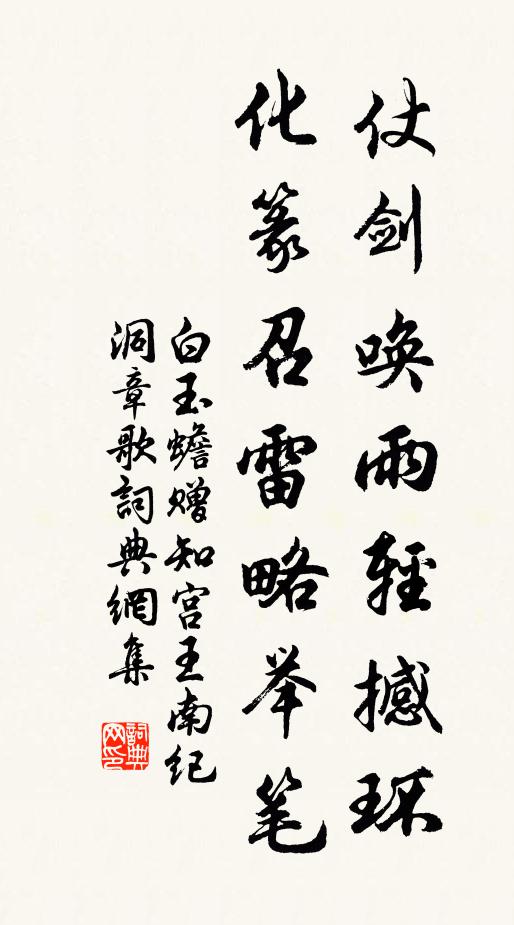 仗剑唤雨輕撼环
化篆召雷略举笔
白玉蟾赠知宫王南纪
洞章歌詞典網集
詞典
网印